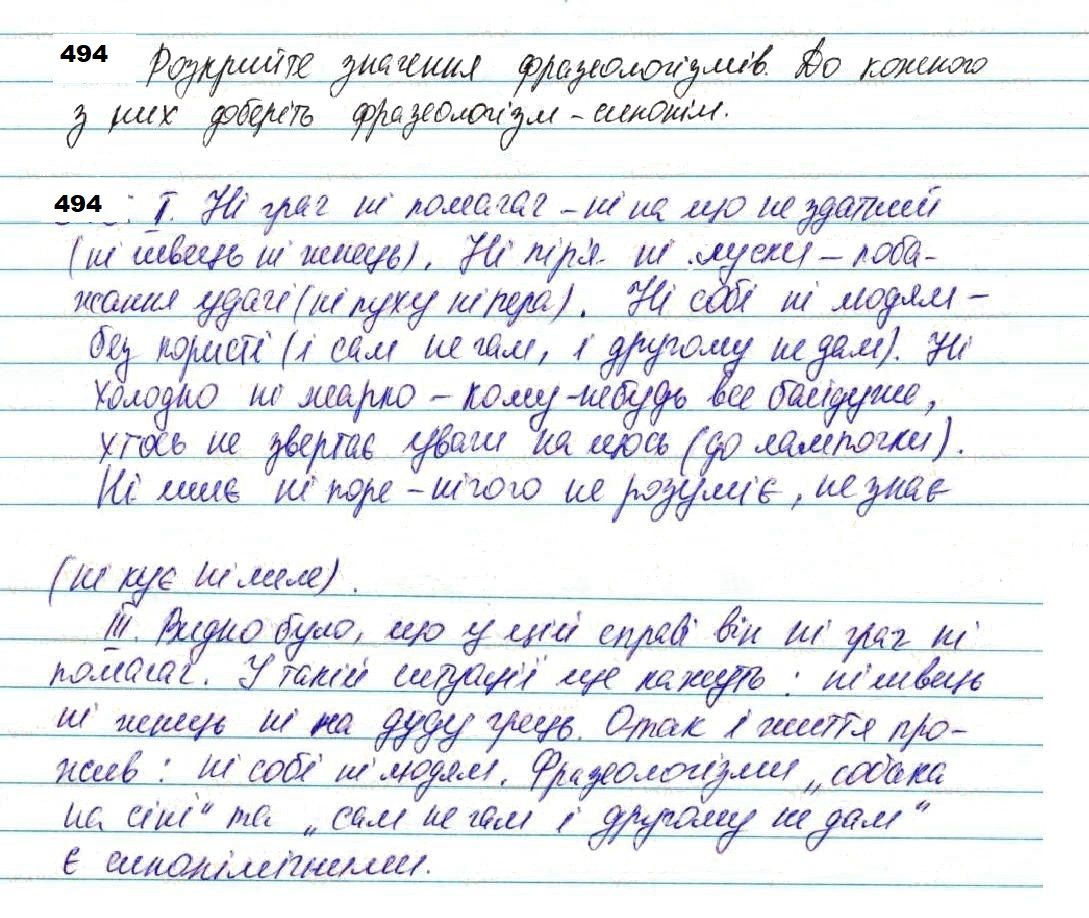 494 Розкрийте значення фразеологізмів. До кожного
з них доберіть фразеологізм-синонім.
494 : I. Ні грач ні помагач – ні на що не здатний
(ні швець ні жнець). Ні пір'я ні луски – поба-
жання удачі (ні пуху ні пера). Ні собі ні людям –
без користі (і сам не гам, і другому не дам). Ні
холодно ні жарко – кому-небудь все байдуже,
хтось не звертає уваги на щось (до лампочки).
Ні меле ні поре – нічого не розуміє, не знає
(ні кує ні меле).
III. Видно було, що у цій справі він ні грач ні
помагач. У такій ситуації ще кажуть: ні швець
ні жнець ні на дуду грець. Отак і життя про-
жив: ні собі ні людям. Фразеологізми „собака
на сіні“ та „сам не гам і другому не дам“
є синонімічними.